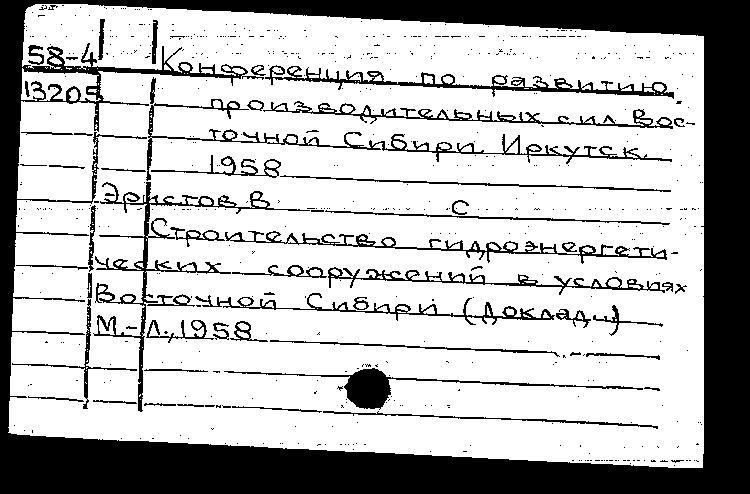 58-4 Конференция по развитию
13205 производительных сил Вос-
точной Сибири. Иркутск.
1958
Эристов, В С
Строительство гидроэнергети-
ческих сооружений в условиях
Восточной Сибири. (Доклад...)
М.-Л., 1958